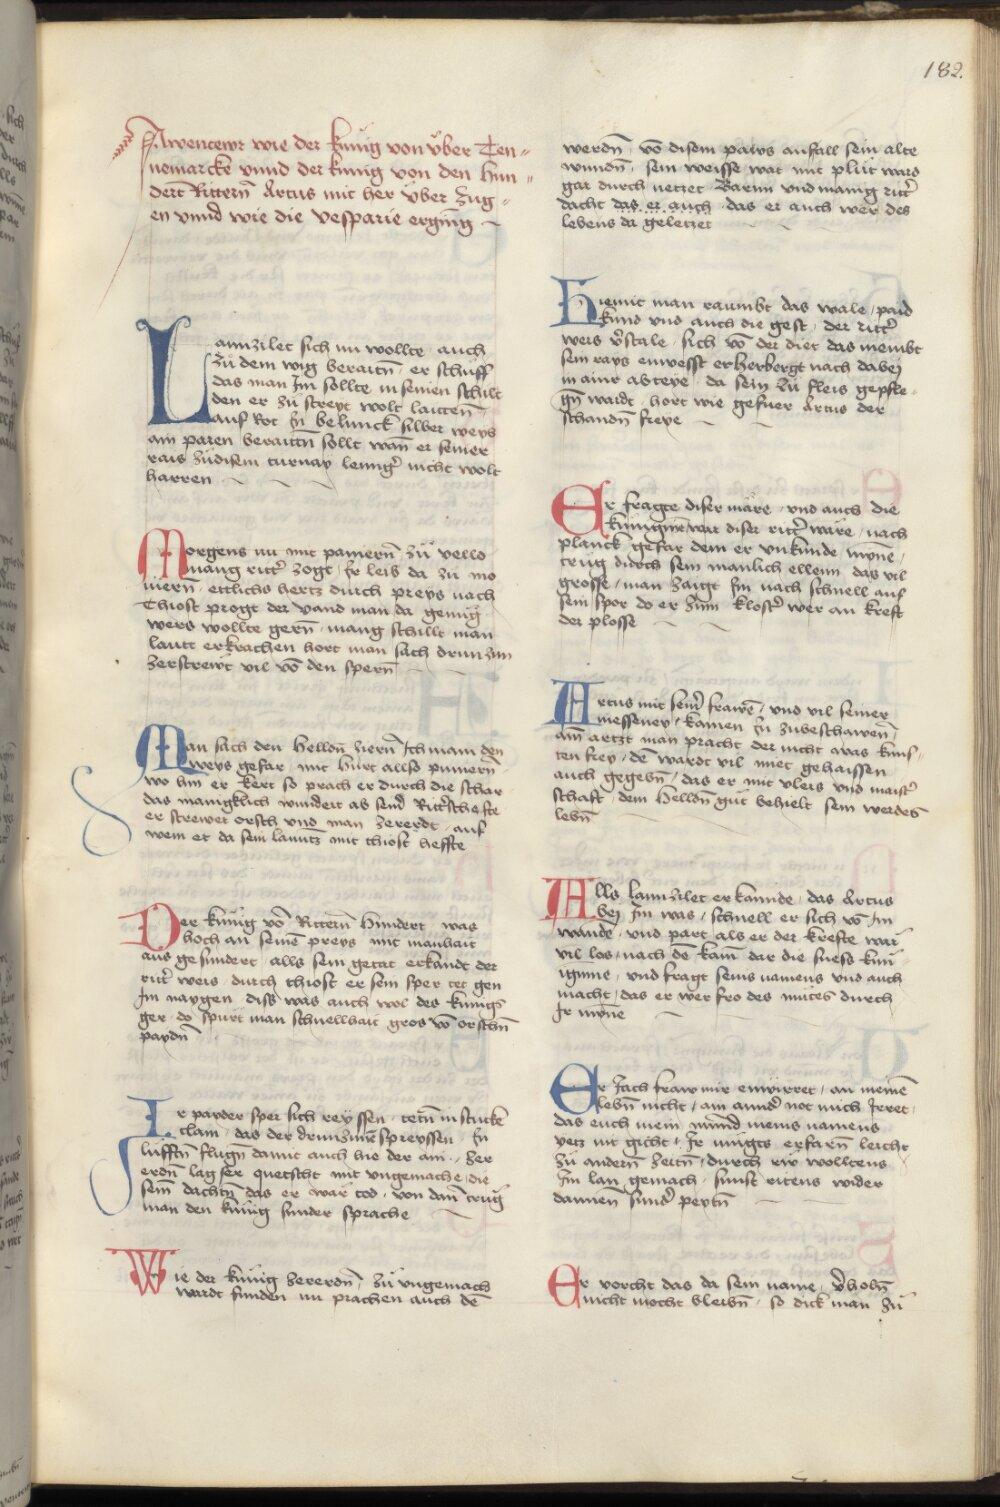 182.
Awentewr wie der kunig von uber Ten-
nemarcke unnd der kunig von den hun-
dert Rittern Artus mit her uber zug-
en unnd wie die vesparie erging
Lannzilet sich nu wollte auch
zu dem wig beraitn er schuff
das man Im sollte in seinen schilt
den er zu streyt wolt lauten
auf Rot In belunck silber weys
am paren beraittn sollt wan er seiner
rais zu disem turnay lenng nicht wolt
harren
Morgens nu mit panern zu vello
mang rittr zogt Ir leib da zu mo
niern ettlichs hertz durch preys nach
Thiost progt der vand man da genug
wers wollte gern mang schillt man
laut erkrachen hort man sach drunzun
zerstrewt vil vo den spern
Man sach den helldn ziern Ich main den
weys gefar mit hurt allso puniern
wo hin er kert so prach er durch die schar
das manigklich wundert ab send Rittrschefte
er strewet orsch und man zererdt auf
wem et da sein lanntz mit thiost heffte
Der kunig vo Rittern hundert was
hoch an seine preys mit manhait
aus gesundert alls sein getat erkandt der
rittr weis durch thiost er sein sper tet gen
Im naygen diss was auch wol des kunigs
ger do spurt man schnellhait gros vo orschn
paydn
Ir payder sper sich reyssen tetn in stucke
clain das der drunzune spreyssen In
lufftn flugn damit auch hie der ain zer
erdn lag ser quetscht mit ungemache die
sein dachtn das er war tod von dan trug
man den kunig sunder sprache
Wie der kunig zererdn zu ungemach
wardt funden nu prachen auch de
werdn vo disem paws anfall sein alte
wundn sein weisse wat mit plut wars
gar durch netzet Barun und manig rittr
dacht das er auch das er auch wer des
lebens da geletzet
Hiemit man raumbt das wale paid
kund und auch die gest der rittr
weis vstale sich vo der diet das niembt
sein rays enwesst er herbergt nach dabey
in ainr abteye da sein zu fleis gepfle
gn waidt hort wie gefuer Artus der
schandn freye
Er fragte diser märe und auch die
kunigine war diser rittr wäre nach
planck gefar dem er unkunde mynne
trug durch sein manlich ellenn das vil
grosse man zaigt Im nach schnell auf
sein spor do er zum klostr wer an kreft
der plosse
Artus mit seinr frawe und vil seiner
messeney kamen In zubeschawen
ain artzt man pracht der nicht was kuns
ten frey de wardt vil miet gehaissen
auch gegebn das er mit vleis und maistr
schaft dem helldn gut behielt sein werdes
lebn
Alls lannzilet erkannde das Artus
bey Im was schnell er sich vo Im
wande und part als er der krefte war
vil los nach de kam dar die suess kun
iginne und fragt seins namens und auch
macht das er wer fro des mutes durch
Ir myne
Er Jach fraw mir enwirret an meine
lebn nicht am annd not mich Irret
das euch mein mund meins namens
yetz nit gicht Ir mugts erfarn leicht
zu andern zeitn durch rw wolltens
Im lan gemach sunst ritens wider
dannen sund peytn
Er vorcht das da sein name vholn
nicht mocht bleibn so dick man zu